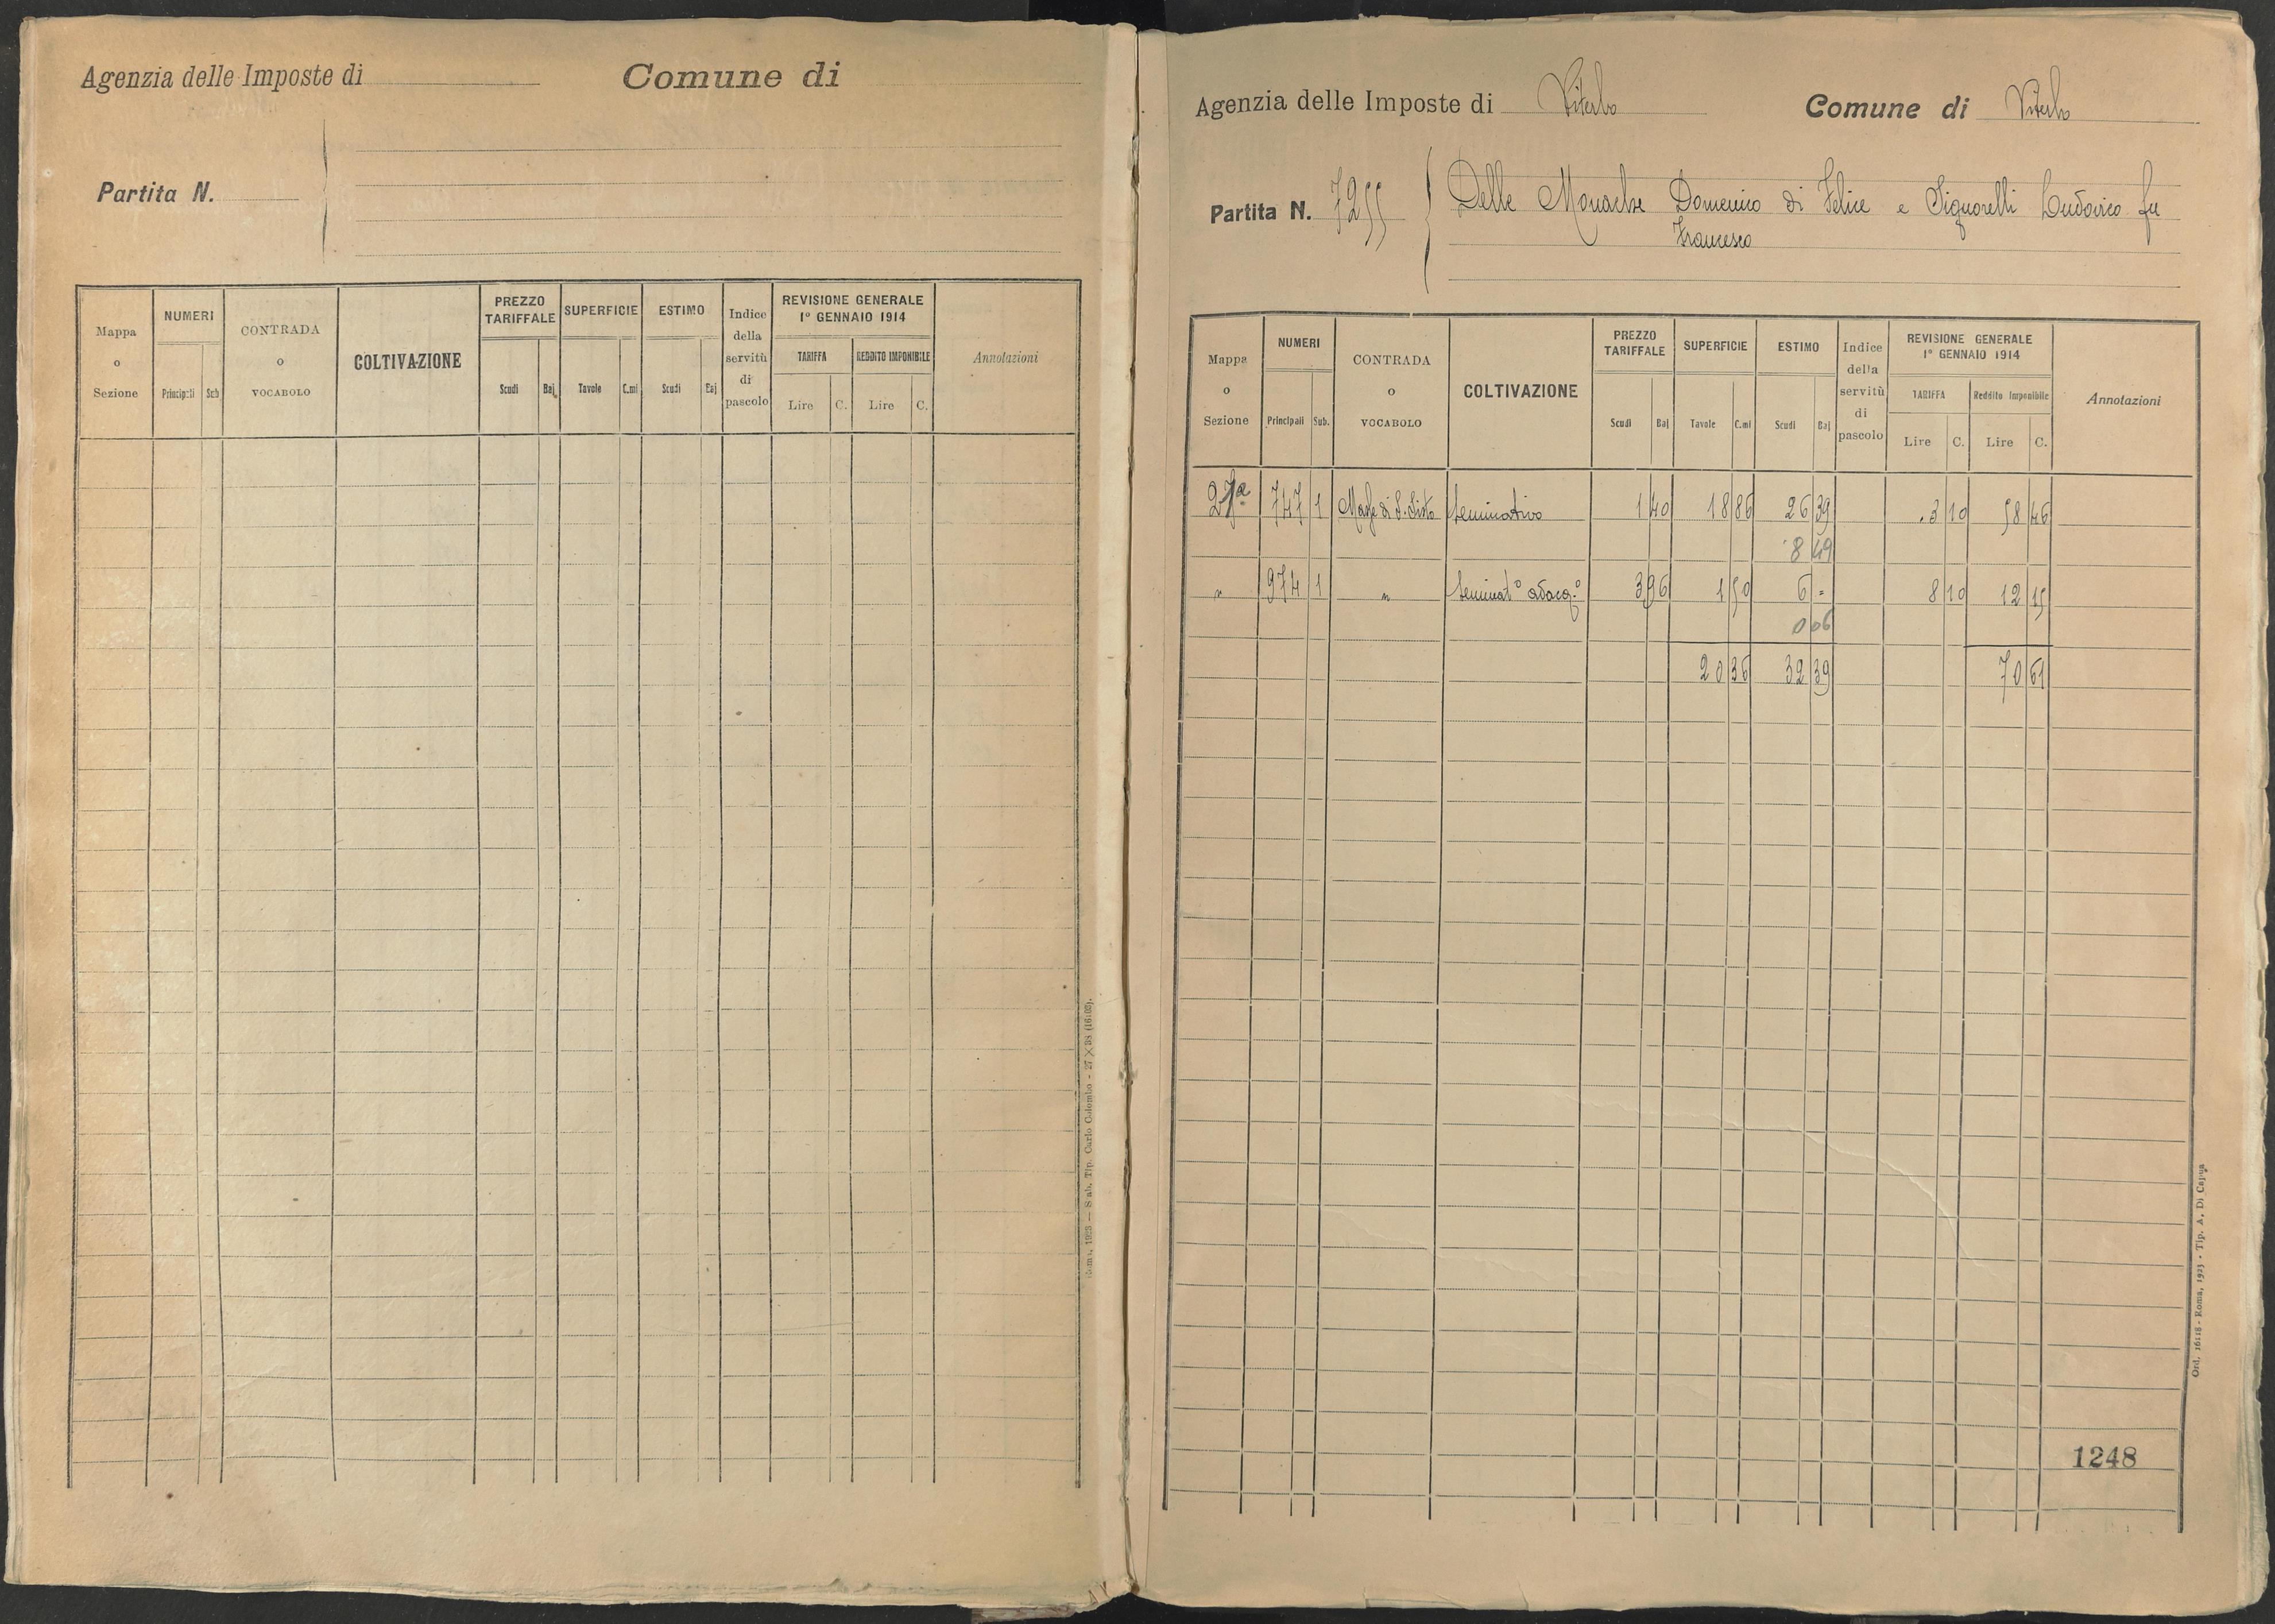 Agenzia delle Imposte di Comune di
Partita N.
Mappa o Sezione NUMERI Principali Sub CONTRADA o VOCABOLO COLTIVAZIONE PREZZO TARIFFALE Scudi Baj. SUPERFICIE Tavole C.mi ESTIMO Scudi Baj Indice della servitù di pascolo REVISIONE GENERALE 1° GENNAIO 1914 TARIFFA Lire C. REDDITO IMPONIBILE Lire C. Annotazioni
Roma, 1923 — Stab. Tip. Carlo Colombo - 27 X 38 (16:03).
Agenzia delle Imposte di Viterbo Comune di Viterbo
Partita N. 7255 Delle Monache Domenico di Felice e Signorelli Ludovico fu
Francesco
Mappa o Sezione NUMERI Principali Sub. CONTRADA o VOCABOLO COLTIVAZIONE PREZZO TARIFFALE Scudi Baj SUPERFICIE Tavole C.mi ESTIMO Scudi Baj Indice della servitù di pascolo REVISIONE GENERALE 1° GENNAIO 1914 TARIFFA Lire C. Reddito Imponibile Lire C. Annotazioni
27a 747 1 di S. Sisto Seminativo 1 40 18 86 26 39 3 10 58 46
8 49
" 974 1 " Seminat° adacq.° 3 96 1 50 6 = 8 10 12 15
0 06
20 36 32 39 70 61
1248
Ord. 16118 - Roma, 1923 - Tip. A. Di Capua